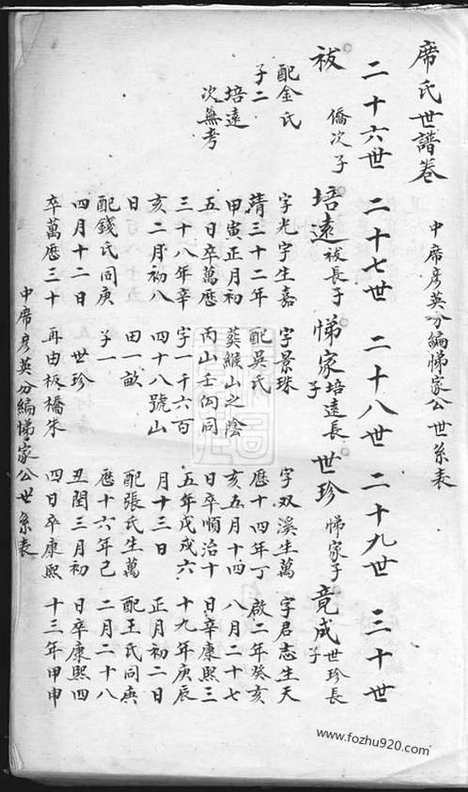 席氏世譜卷
中席彦英分編悌家公世系表
二十六世 二十七世 二十八世 二十九世 三十世
袚 僑次子 培遠 袚長子 悌家 培遠長子 世珍 悌家子 竟成 世珍長子
配金氏 字光宇生嘉 字景珠 字双溪生萬 字君志生天
子二 靖三十二年 配吳氏 曆十四年丁 啟二年癸亥
培遠 甲寅正月初 葬緱山之陰 亥五月十四 八月二十七
次無考 五日卒萬歷 丙山壬向同 日卒順治十 日卒康熙三
三十八年辛 字一千六百 五年戊戌六 十九年庚辰
亥二月初八 四十八號山 月十三日 正月初二日
日 田一畝 配張氏生萬 配王氏同庚
配錢氏同庚 子一 曆十六年己 二月二十八
四月十二日 世珍 丑閏三月初 日卒康熙四
卒萬歷三十 再由板橋朱 四日卒康熙 十三年甲申
中席彦英分編悌家公世系表
www.fozhu920.com